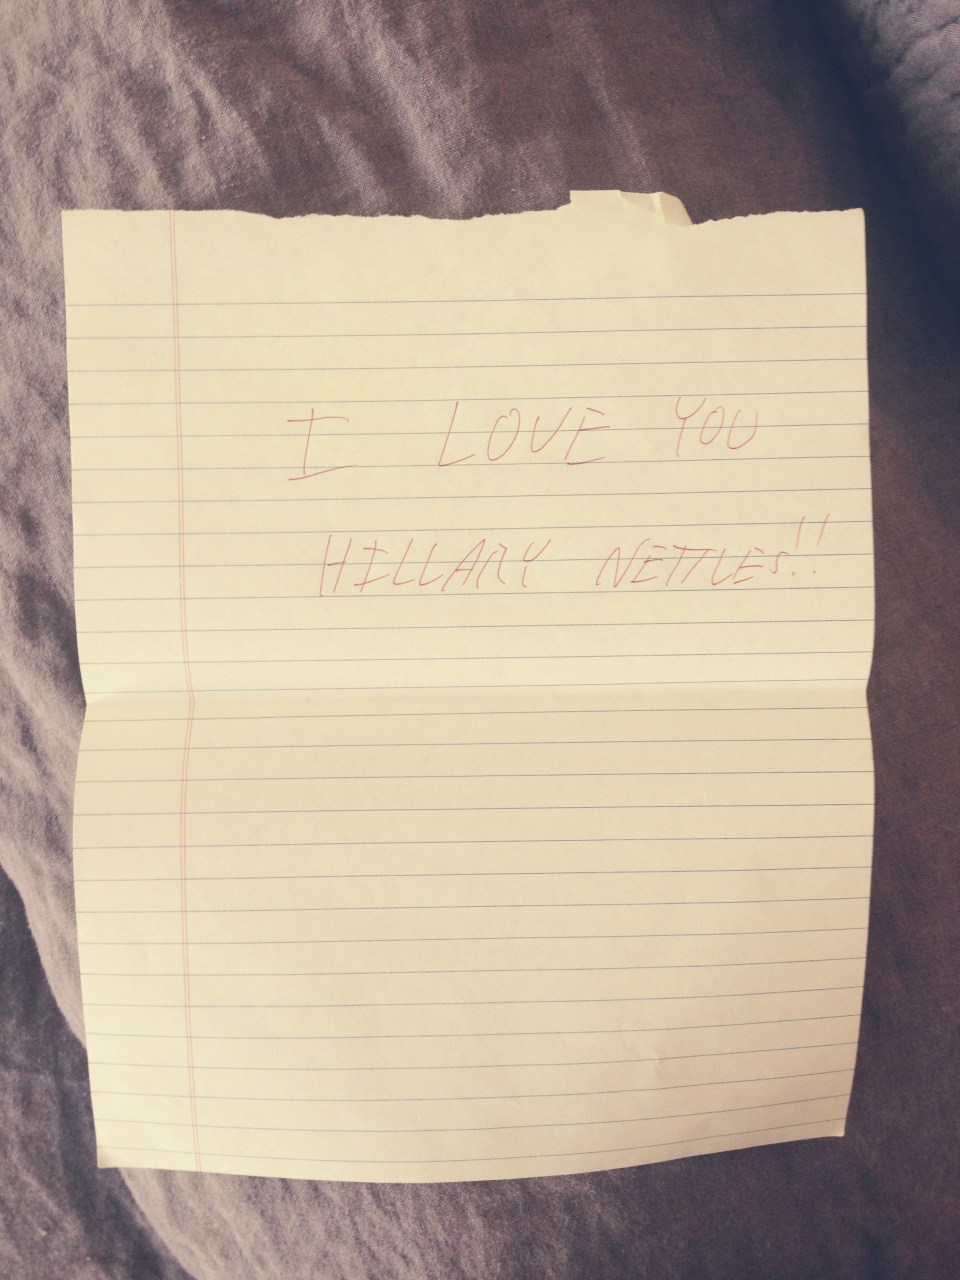 I LOVE YOU
HILLARY NETTLES!!